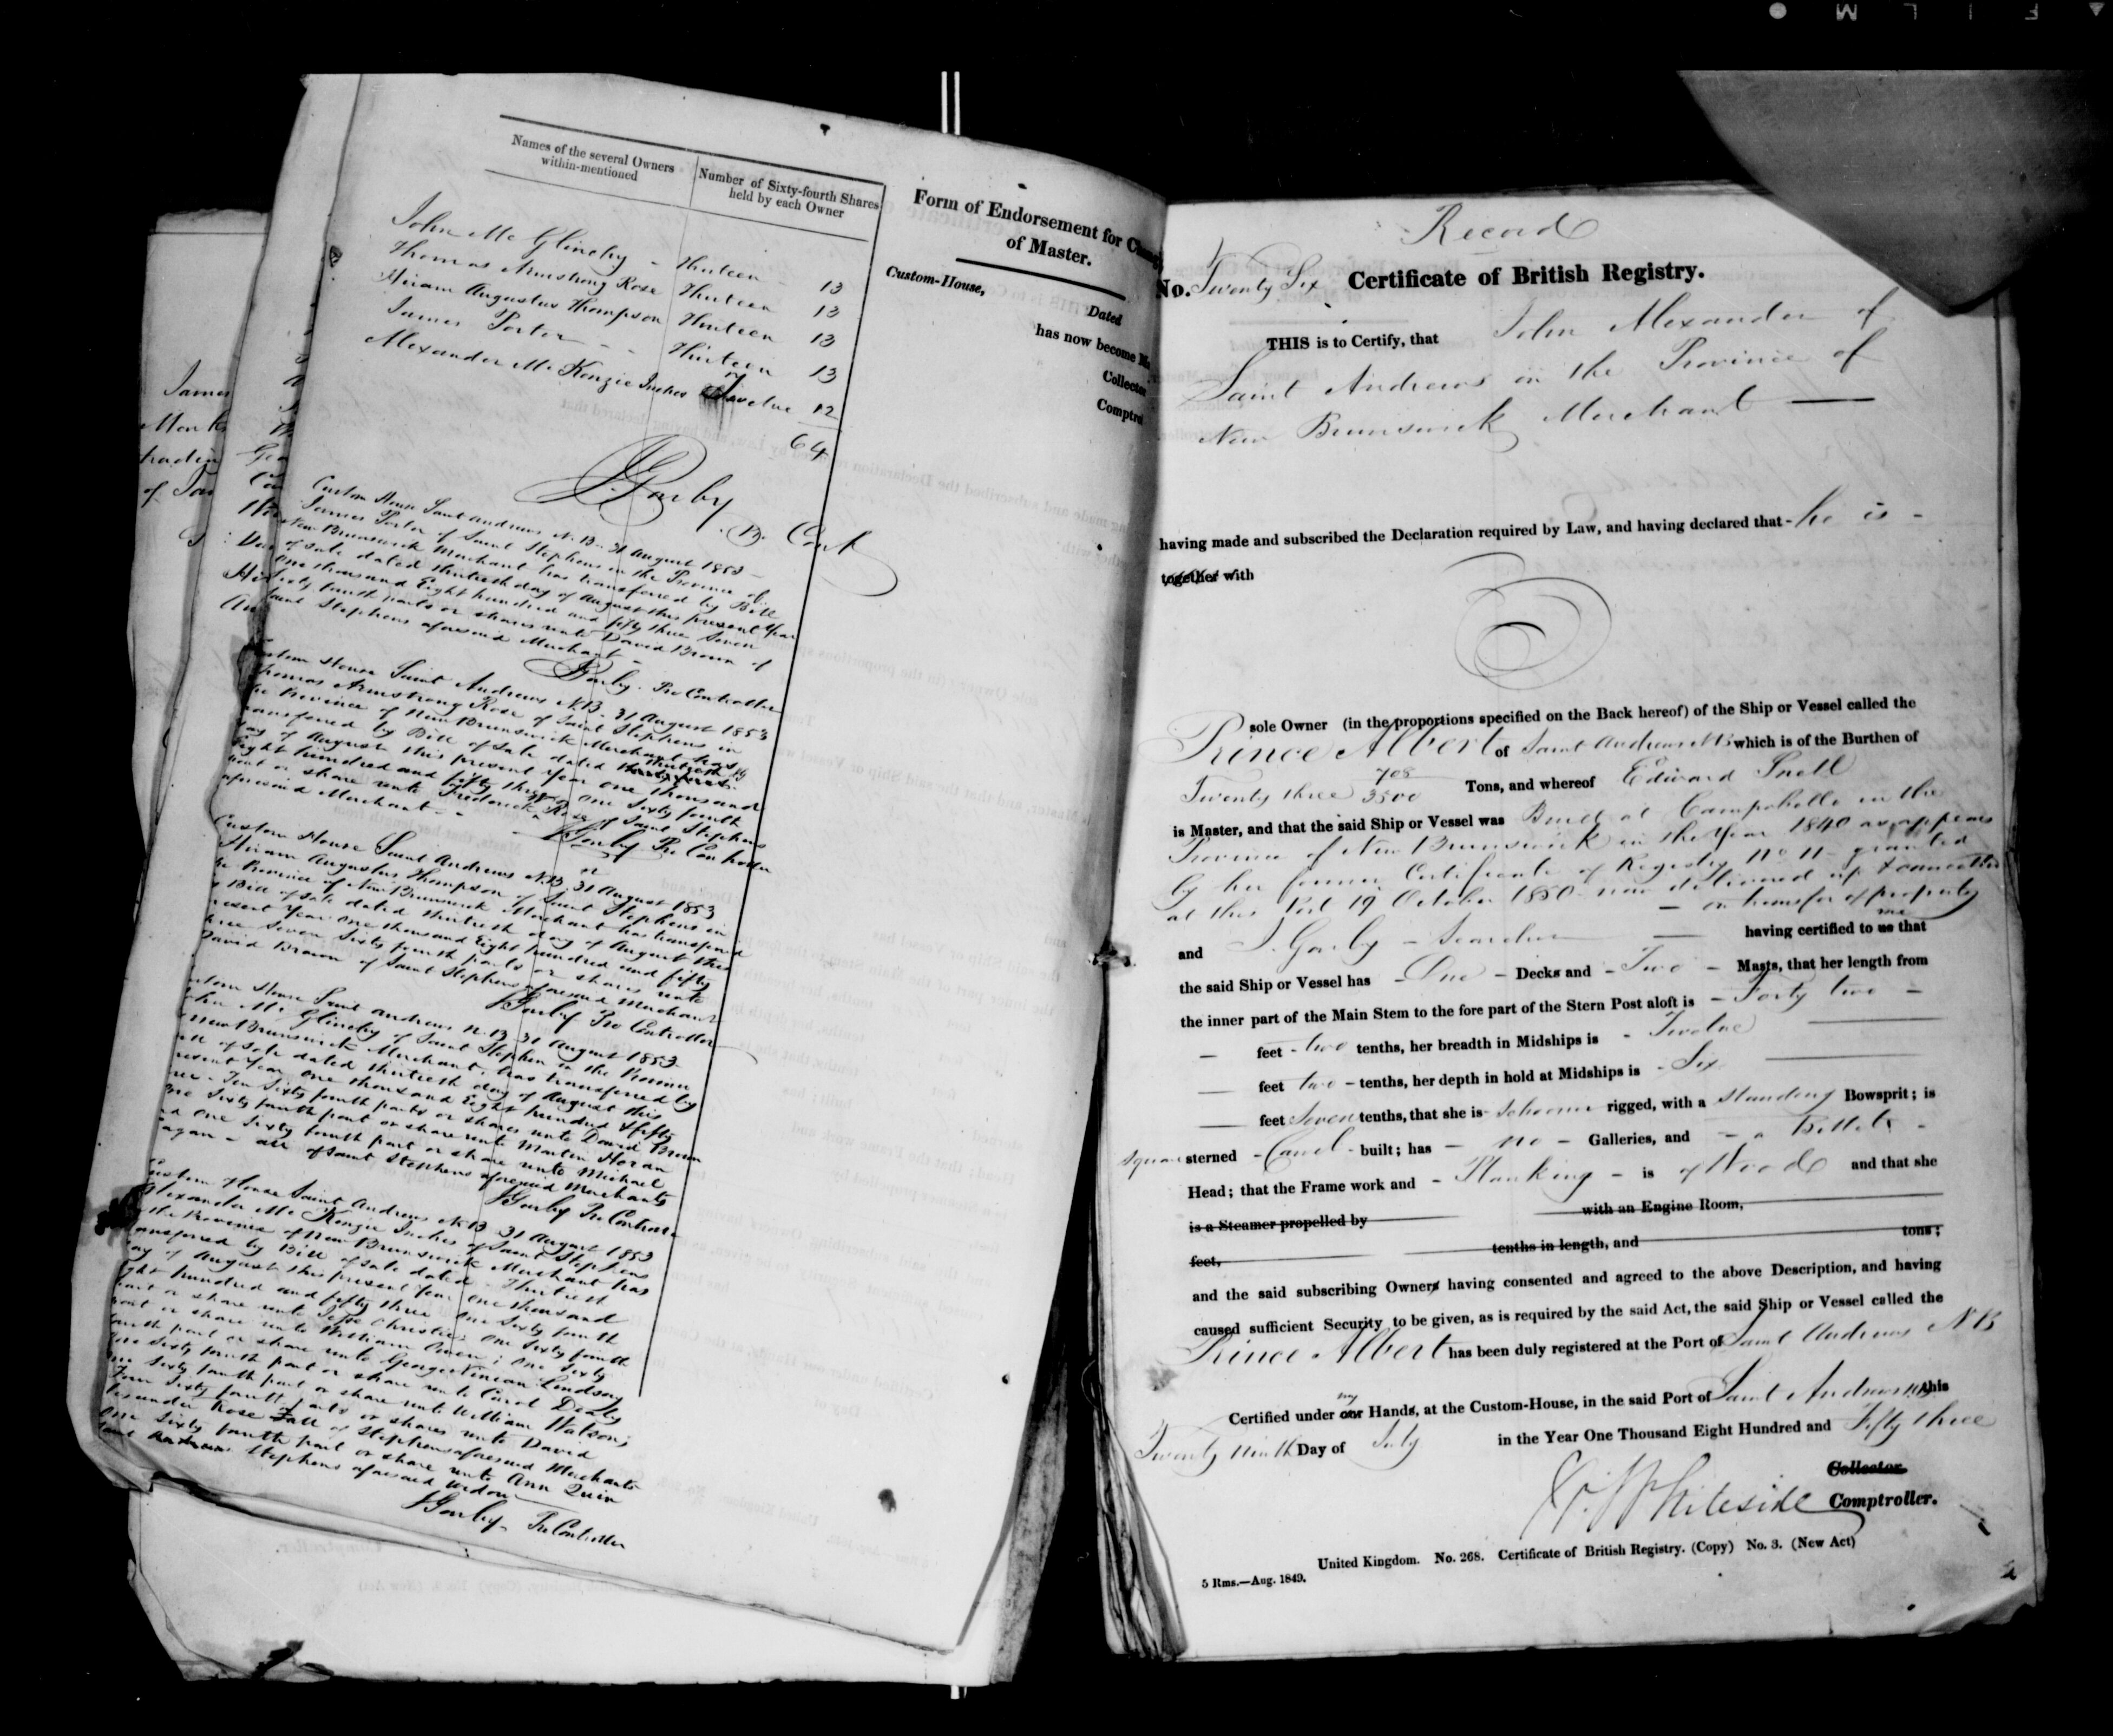 FILM
Names of the several Owners within-mentioned
Number of Sixty-fourth Shares held by each Owner
John Mc Glinchy - Thirteen - 13
Thomas Armstrong Rose Thirteen 13
Hiram Augustus Thompson Thirteen 13
James Porter - - Thirteen 13
Alexander Mc Kenzie Inches Twelve 12
64
Custom House Saint Andrews N.B. 31 August 1853 -
James Porter of Saint Stephens in the Province of
New Brunswick Merchant has transferred by Bill
of Sale dated thirtieth day of August this present Year
One thousand Eight hundred and fifty three Seven
Sixty fourth parts or shares unto David Brown of
Saint Stephens aforesaid Merchant -
Pro Controller
Custom House Saint Andrews N.B. 31 August 1853
Thomas Armstrong Rose of Saint Stephens in
the Province of New Brunswick Merchant has
transferred by Bill of Sale dated thirtieth
day of August this present Year one thousand
Eight hundred and fifty three One Sixty fourth
part or share unto Frederick Rose of Saint Stephens
aforesaid Merchant - -
Pro Controller
Custom House Saint Andrews N.B. 31 August 1853
Hiram Augustus Thompson of Saint Stephens in
the Province of New Brunswick Merchant has transferred
by Bill of Sale dated thirtieth day of August this
present Year One thousand Eight hundred and fifty
three Seven Sixty fourth parts or shares unto
David Brown of Saint Stephens aforesaid Merchant
Pro Controller
Custom House Saint Andrews N.B. 31 August 1853
John Mc Glinchy of Saint Stephen in the Province
of New Brunswick Merchant, has transferred by
Bill of Sale dated thirtieth day of August this
present Year One thousand Eight hundred & fifty
three - Ten Sixty fourth parts or shares unto David Brown
One Sixty fourth part or share unto Martin Horan
and One Sixty fourth part or share unto Michael
- all of Saint Stephens aforesaid Merchants
Pro Controller
Custom House Saint Andrews N.B. 31 August 1853
Alexander Mc Kenzie Inches of Saint Stephens
in the Province of New Brunswick Merchant has
transferred by Bill of Sale dated - Thirtieth
day of August this present Year One thousand
Eight hundred and fifty three One Sixty fourth
part or share unto Jesse Christie; One Sixty fourth
part or share unto William Owen; One Sixty
fourth part or share unto George Ninian Lindsay
One Sixty fourth part or share unto
One Sixty fourth part or share unto William Watson;
Four Sixty fourth parts or shares unto David
all of Stephens aforesaid Merchants
One Sixty fourth part or share unto Ann Quin
Saint Stephens aforesaid Widow
Pro Controller
Form of Endorsement for Chang
of Master.
Custom-House,
Dated
has now become
Collector
Comptrol
Record
No. Twenty Six Certificate of British Registry.
THIS is to Certify, that John Alexander of
Saint Andrews in the Province of
New Brunswick Merchant
having made and subscribed the Declaration required by Law, and having declared that - he is -
together with
sole Owner (in the proportions specified on the Back hereof) of the Ship or Vessel called the
Prince Albert of Saint Andrews NB which is of the Burthen of
Twenty three 708/3500 Tons, and whereof Edward Snell
is Master, and that the said Ship or Vessel was Built at Campobello in the
Province of New Brunswick in the Year 1840 as appears
by her former Certificate of Registry No 11 granted
at this Port 19 October 1850 now delivered up & cancelled
- on transfer of property
and - Searcher having certified to us me that
the said Ship or Vessel has - One - Decks and - Two - Masts, that her length from
the inner part of the Main Stem to the fore part of the Stern Post aloft is - Forty two -
feet - two tenths, her breadth in Midships is - Twelve
feet two - tenths, her depth in hold at Midships is - Six
feet Seven tenths, that she is Schooner rigged, with a Standing Bowsprit; is
Square sterned - Carvel - built; has - no - Galleries, and - a Billet -
Head; that the Frame work and - Planking - is of Wood and that she
is a Steamer propelled by with an Engine Room,
feet, tenths in length, and tons;
and the said subscribing Owners having consented and agreed to the above Description, and having
caused sufficient Security to be given, as is required by the said Act, the said Ship or Vessel called the
Prince Albert has been duly registered at the Port of Saint Andrews NB
Certified under our my Hands, at the Custom-House, in the said Port of Saint Andrews NB this
Twenty ninth Day of July in the Year One Thousand Eight Hundred and Fifty three
Collector
Whiteside Comptroller.
United Kingdom. No. 268. Certificate of British Registry. (Copy) No. 3. (New Act)
5 Rms.—Aug. 1849.